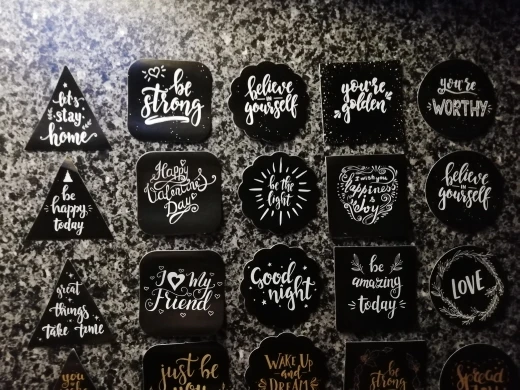 let's
stay
home
be
strong
believe
IN
yourself
you're
golden
you're
WORTHY
be
happy
today
Happy
Valentine's
Day
be the
light
I wish you
Happiness
&
Joy
believe
IN
yourself
great
things
take time
I My
Friend
Good
night
be
amazing
today
LOVE
you
just be
you
WAKE UP
and
DREAM
be
strong
Spread